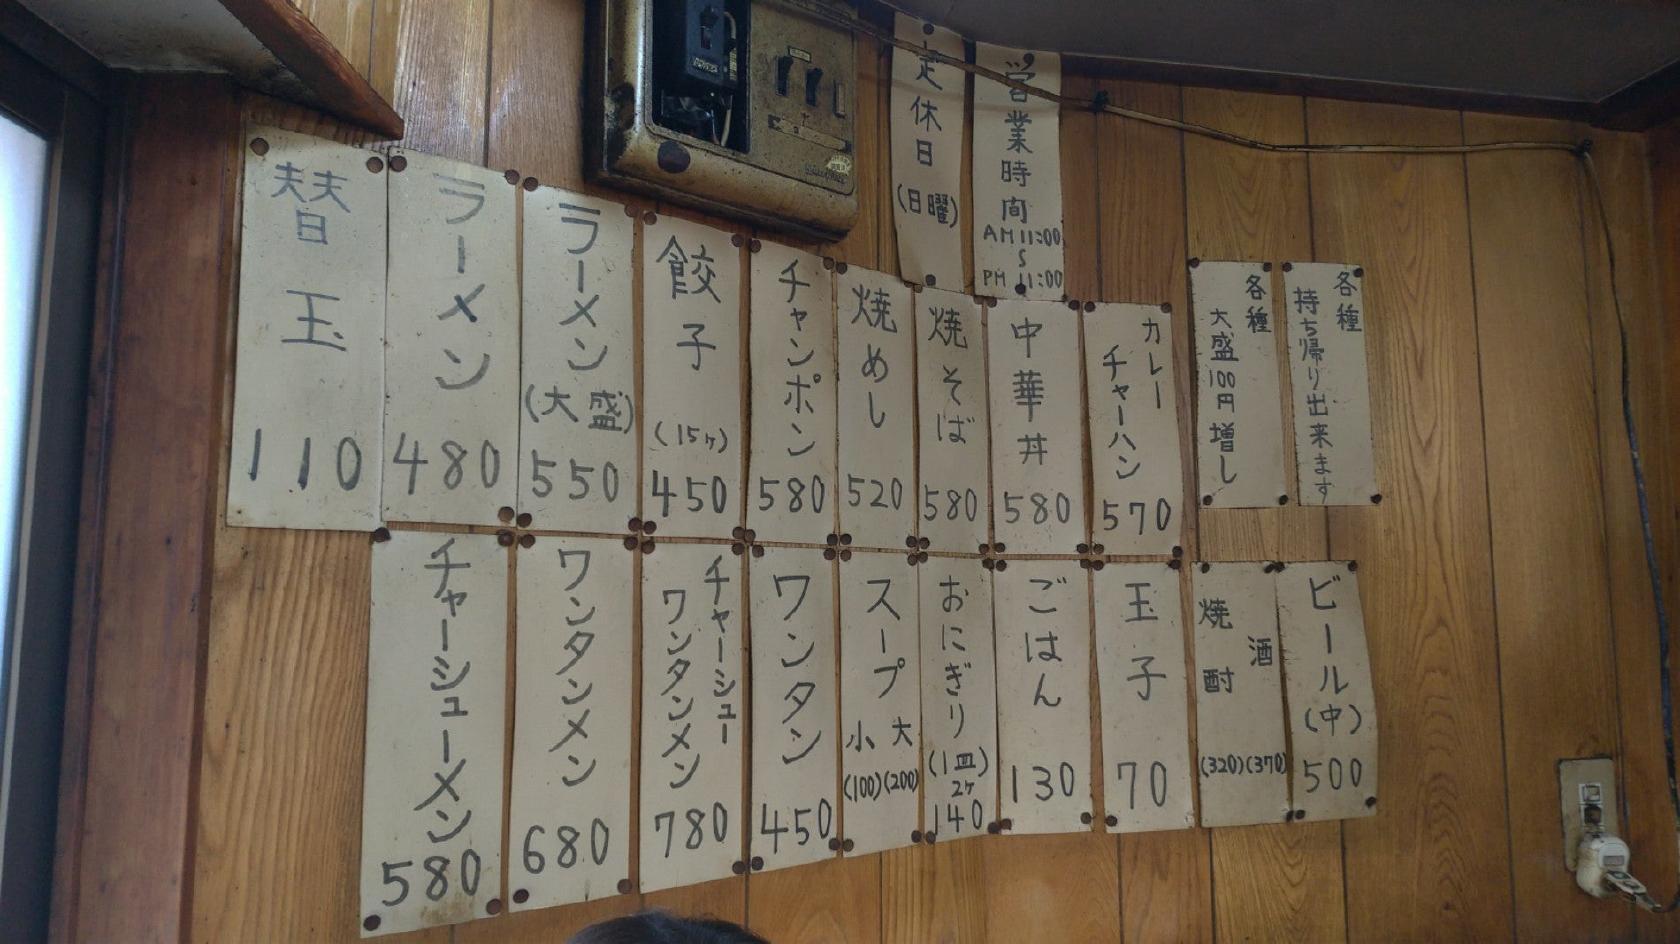 定休日
(日曜)
営業時間
AM 11:00
S
PM 11:00
替玉
110
ラーメン
480
ラーメン
(大盛)
550
餃子
(15ヶ)
450
チャンポン
580
焼めし
520
焼そば
580
中華丼
580
カレー
チャーハン
570
各種
大盛100円増し
各種
持ち帰り出来ます
チャーシューメン
580
ワンタンメン
680
チャーシュー
ワンタンメン
780
ワンタン
450
スープ
大
(200)
小
(100)
おにぎり
(1皿)
2ヶ
140
ごはん
130
玉子
70
酒
(370)
焼酎
(320)
ビール(中)
500